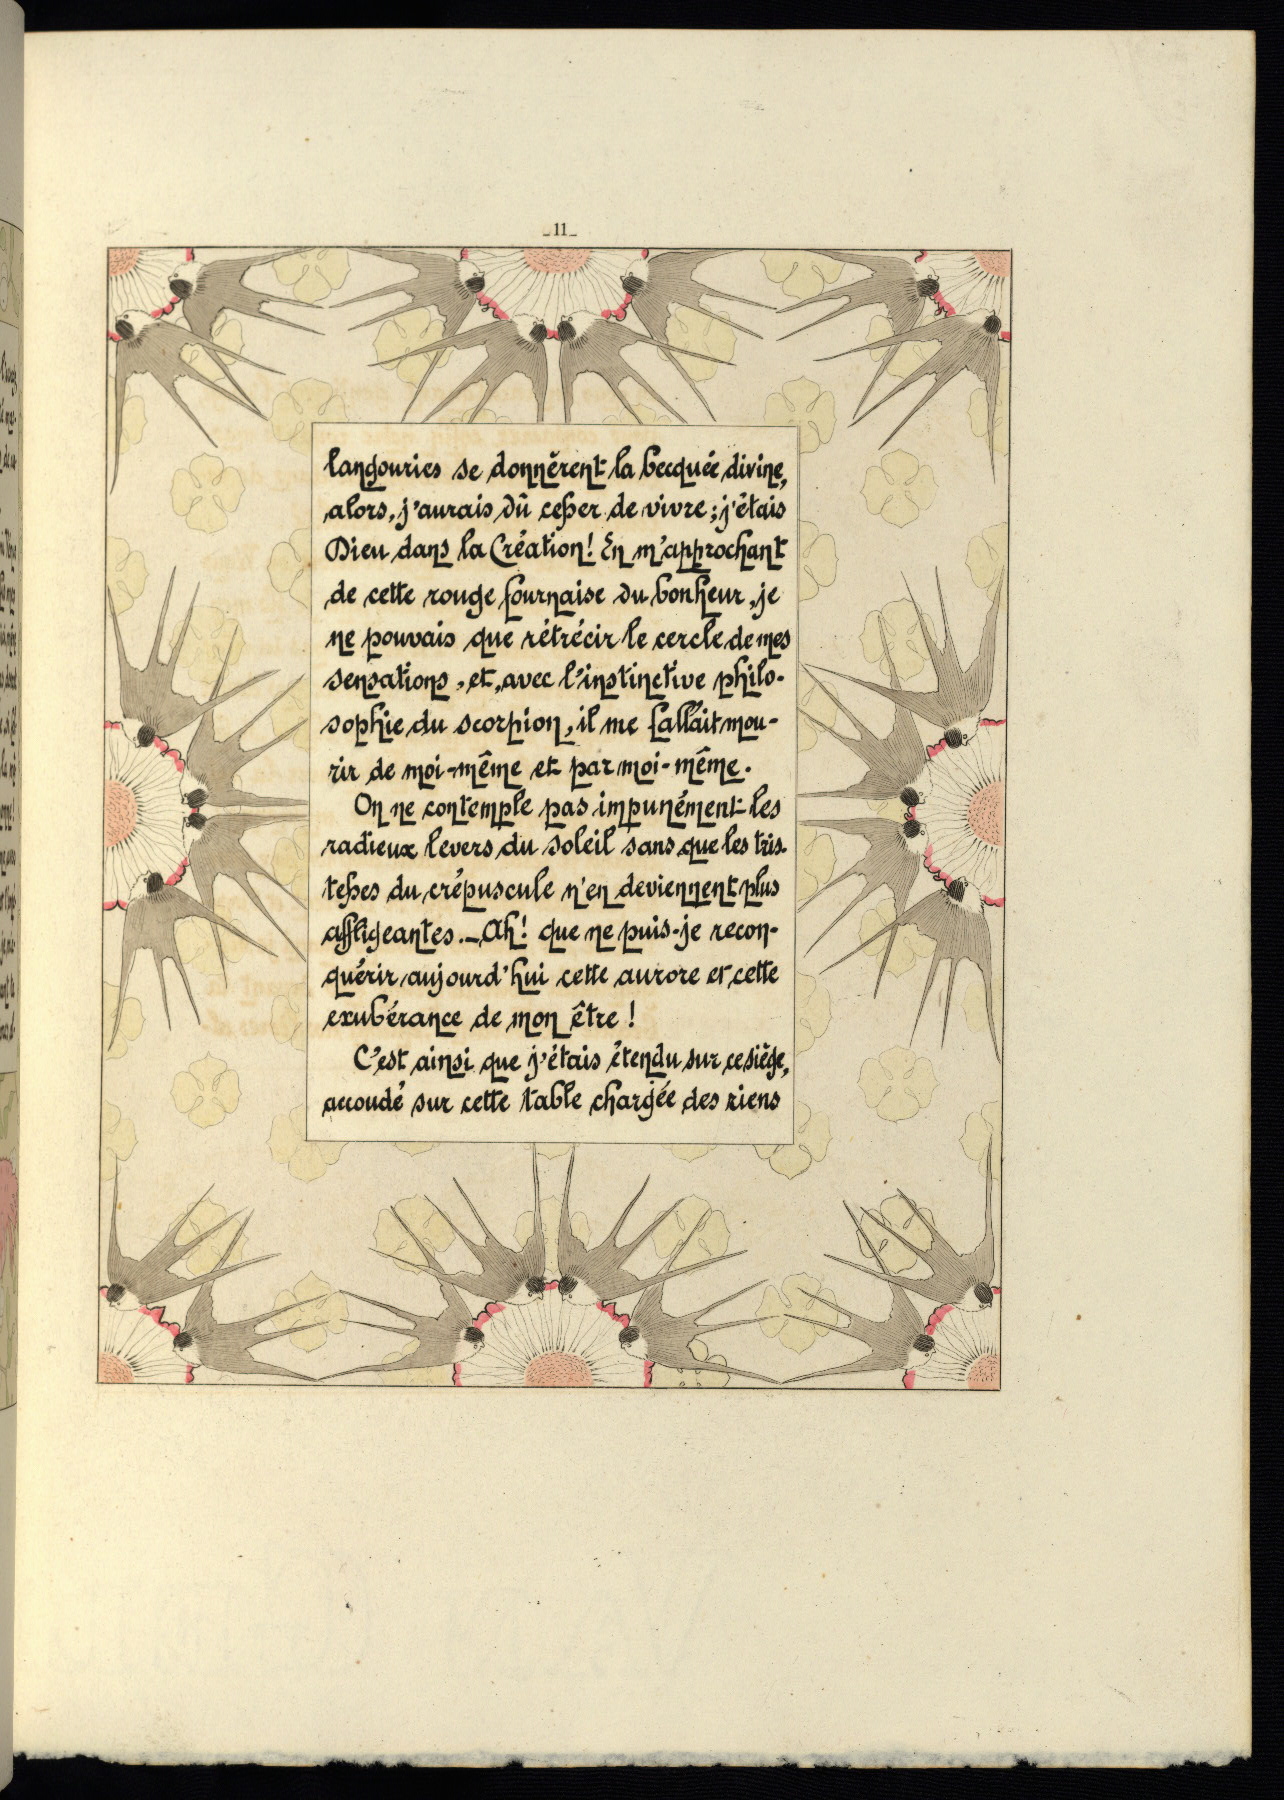 _11_
langouries se donnèrent la becquée divine,
alors, j'aurais dû cesser de vivre ; j'étais
Dieu dans la Création ! En m'approchant
de cette rouge fournaise du bonheur, je
ne pouvais que rétrécir le cercle de mes
sensations, et, avec l'instinctive philo-
sophie du scorpion, il me fallait mou-
rir de moi-même et par moi-même.
On ne contemple pas impunément les
radieux levers du soleil sans que les tris-
tesses du crépuscule n'en deviennent plus
affligeantes. _ Ah ! que ne puis-je recon-
quérir aujourd'hui cette aurore et cette
exubérance de mon être !
C'est ainsi que j'étais étendu sur ce siège,
accoudé sur cette table chargée des riens